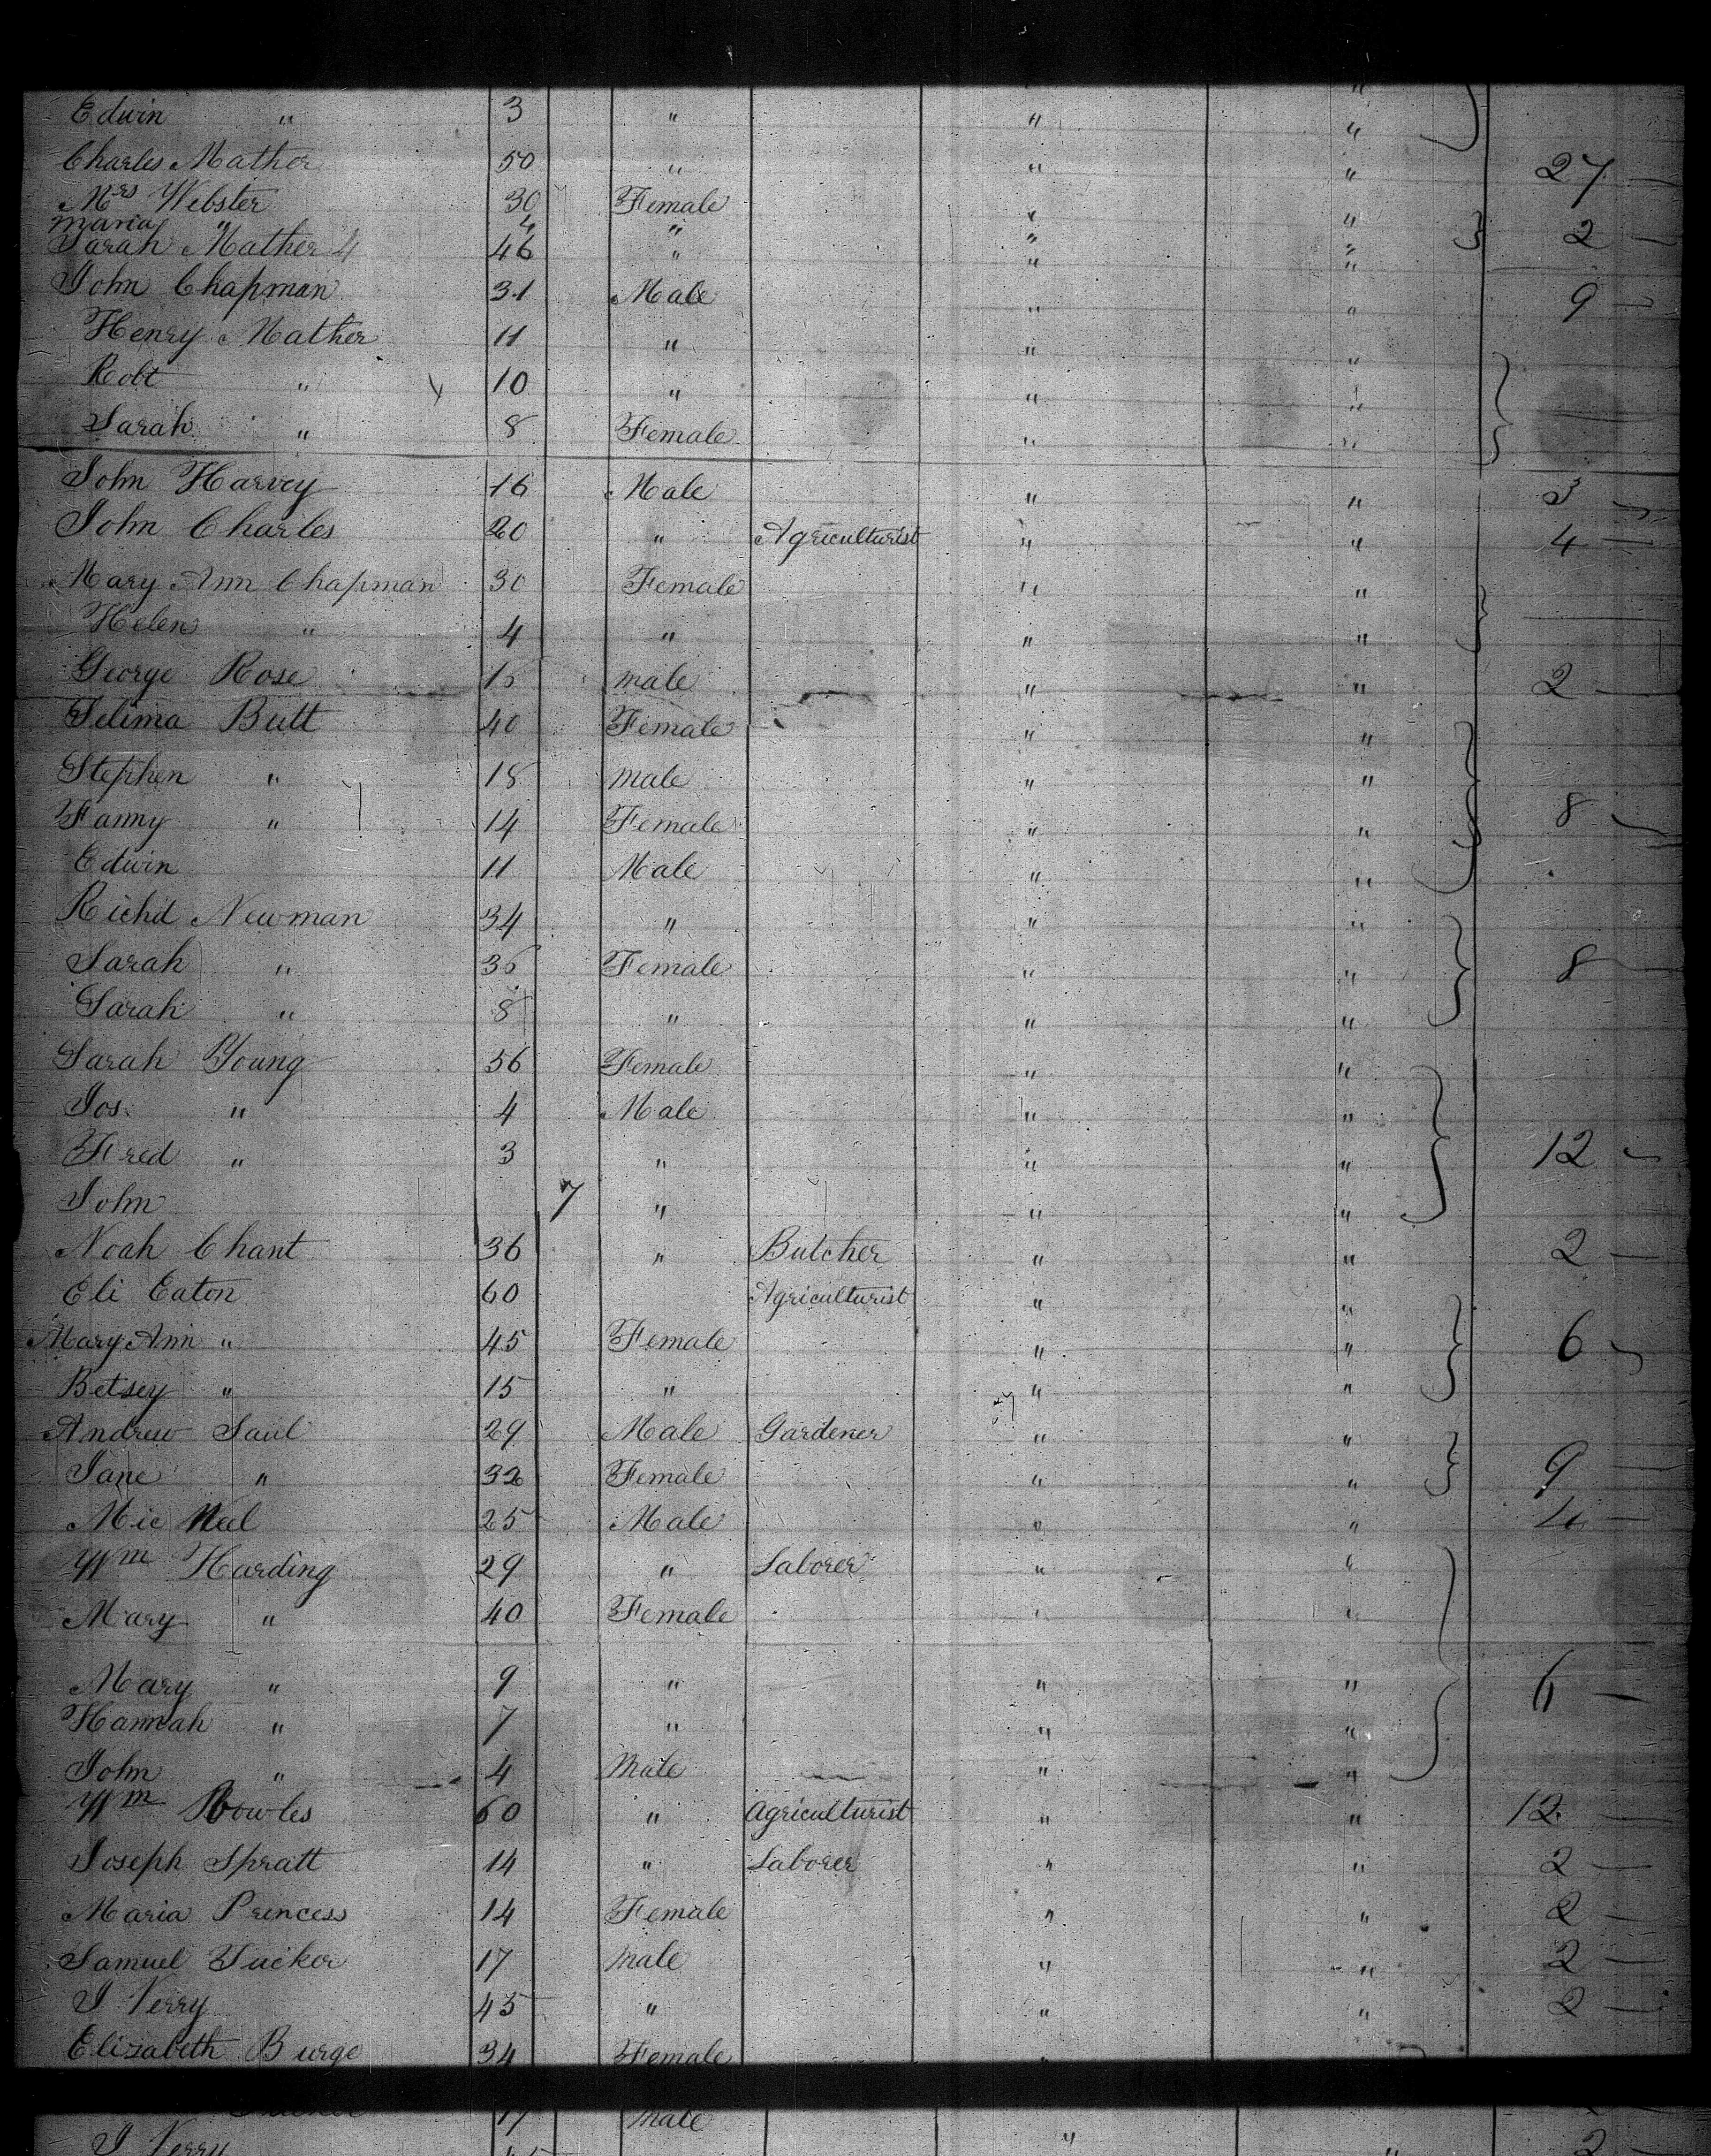 Edwin " 3 " " "
Charles Mather 50 " " " 27
Mrs Webster 30 Female " "
Maria " 4 " " " 2
Sarah Mather 4 46 " " "
John Chapman 31 Male " " 9
Henry Mather 11 " " "
Robt " 10 " " "
Sarah " 8 Female " "
John Harvey 16 Male " " 3
John Charles 20 " Agriculturist " " 4
Mary Ann Chapman 30 Female " "
Helen " 4 " " "
George Rose male " " 2
Selima Butt 40 Female " "
Stephen " 18 male " "
Fanny " 14 Female " " 8
Edwin 11 Male " "
Richd Newman 34 " " "
Sarah " 36 Female " " 8
Sarah " 8 " " "
Sarah Young 36 Female " "
Jos. " 4 Male " "
Fred " 3 " " " 12
John 7 " " "
Noah Chant 36 " Butcher " " 2
Eli Eaton 60 Agriculturist " "
Mary Ann " 45 Female " " 6
Betsey " 15 " " "
Andrew Saul 29 Male Gardener " "
Jane " 32 Female " " 9
Mic Neel 25 Male " " 4
Wm Harding 29 " Laborer " "
Mary " 40 Female " "
Mary " 9 " " " 6
Hannah " 7 " " "
John " 4 Male " "
Wm Bowles 60 " Agriculturist " " 12
Joseph Spratt 14 " Laborer " " 2
Maria Princess 14 Female " " 2
Samuel Tucker 17 male " " 2
J Verry 45 " " " 2
Elizabeth Burge 34 Female "
17 male
J Verry " " 2